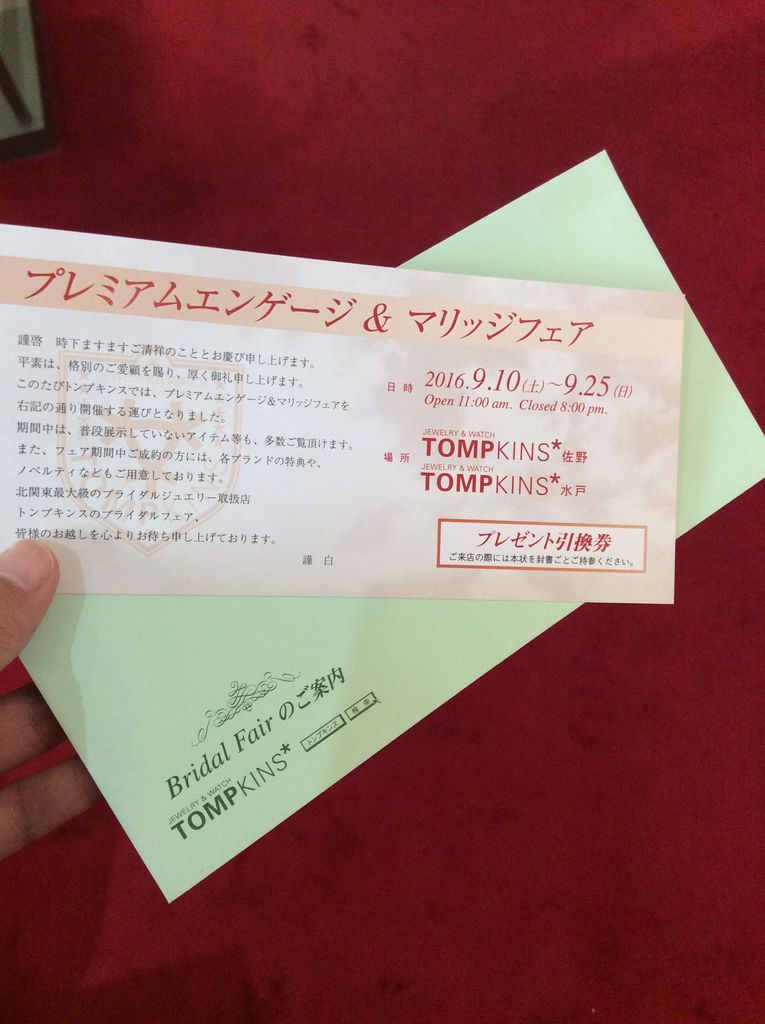 プレミアムエンゲージ & マリッジフェア
謹啓 時下ますますご清祥のこととお慶び申し上げます。
平素は、格別のご愛顧を賜り、厚く御礼申し上げます。
このたびトンプキンスでは、プレミアムエンゲージ&マリッジフェアを
右記の通り開催する運びとなりました。
期間中は、普段展示していないアイテム等も、多数ご覧頂けます。
また、フェア期間中ご成約の方には、各ブランドの特典や、
ノベルティなどもご用意しております。
北関東最大級のブライダルジュエリー取扱店
トンプキンスのブライダルフェア、
皆様のお越しを心よりお待ち申し上げております。
謹 白
日 時 2016.9.10(土)~9.25(日)
Open 11:00 am. Closed 8:00 pm.
JEWELRY & WATCH
場 所 TOMPKINS*佐野
JEWELRY & WATCH
TOMPKINS*水戸
プレゼント引換券
ご来店の際には本状を封書ごとご持参ください。
Bridal Fair のご案内
JEWELRY & WATCH
TOMPKINS* トンプキンス 検索